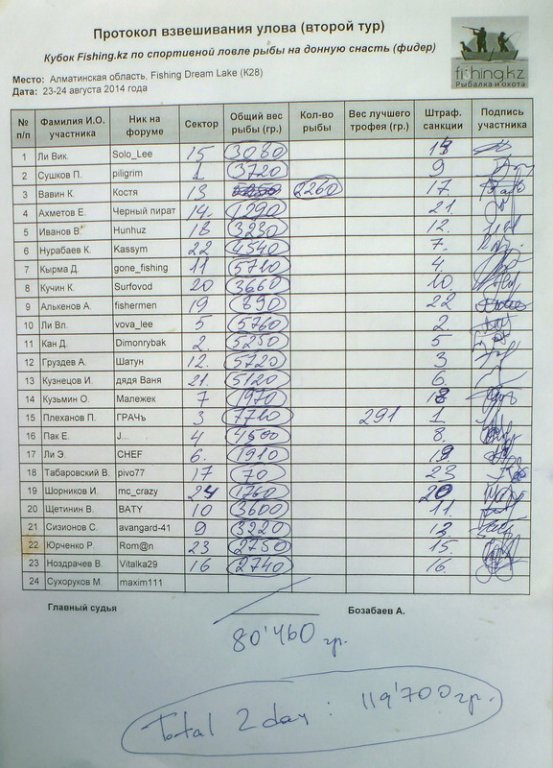 Протокол взвешивания улова (второй тур)
Кубок Fishing.kz по спортивной ловле рыбы на донную снасть (фидер)
fishing.kz
Рыбалка и охота
Место: Алматинская область, Fishing Dream Lake (К28)
Дата: 23-24 августа 2014 года
№ п/п Фамилия И.О. участника Ник на форуме Сектор Общий вес рыбы (гр.) Кол-во рыбы Вес лучшего трофея (гр.) Штраф. санкции Подпись участника
1 Ли Вик. Solo_Lee 15 3080 14
2 Сушков П. piligrim 1 3720 9
3 Вавин К. Костя 13 2260 17
4 Ахметов Е. Черный пират 14. 1290 21.
5 Иванов В. Hunhuz 18 3230 12.
6 Нурабаев К. Kassym 22 4540 7.
7 Кырма Д. gone_fishing 11 5710 4.
8 Кучин К. Surfovod 20 3660 10.
9 Алькенов А. fishermen 19 890 22
10 Ли Вл. vova_lee 5 5760 2.
11 Кан Д. Dimonrybak 2. 5250 5
12 Груздев А. Шатун 12. 5720 3
13 Кузнецов И. дядя Ваня 21. 5120 6.
14 Кузьмин О. Малежек 7 1970 18
15 Плеханов П. ГРАЧъ 3 7710 291 1.
16 Пак Е. J... 4 4500 8.
17 Ли Э. CHEF 6. 1910 19
18 Табаровский В. pivo77 17 70 23
19 Шорников И. mc_crazy 24 1760 20
20 Щетинин В. BATY 10 3600 11.
21 Сизионов С. avangard-41 9 3220 13
22 Юрченко Р. Rom@n 23 2750 15.
23 Ноздрачев В. Vitalka29 16 2740 16.
24 Сухоруков М. maxim111
Главный судья Бозабаев А.
80'460 гр.
Total 2 day : 119'700 гр.